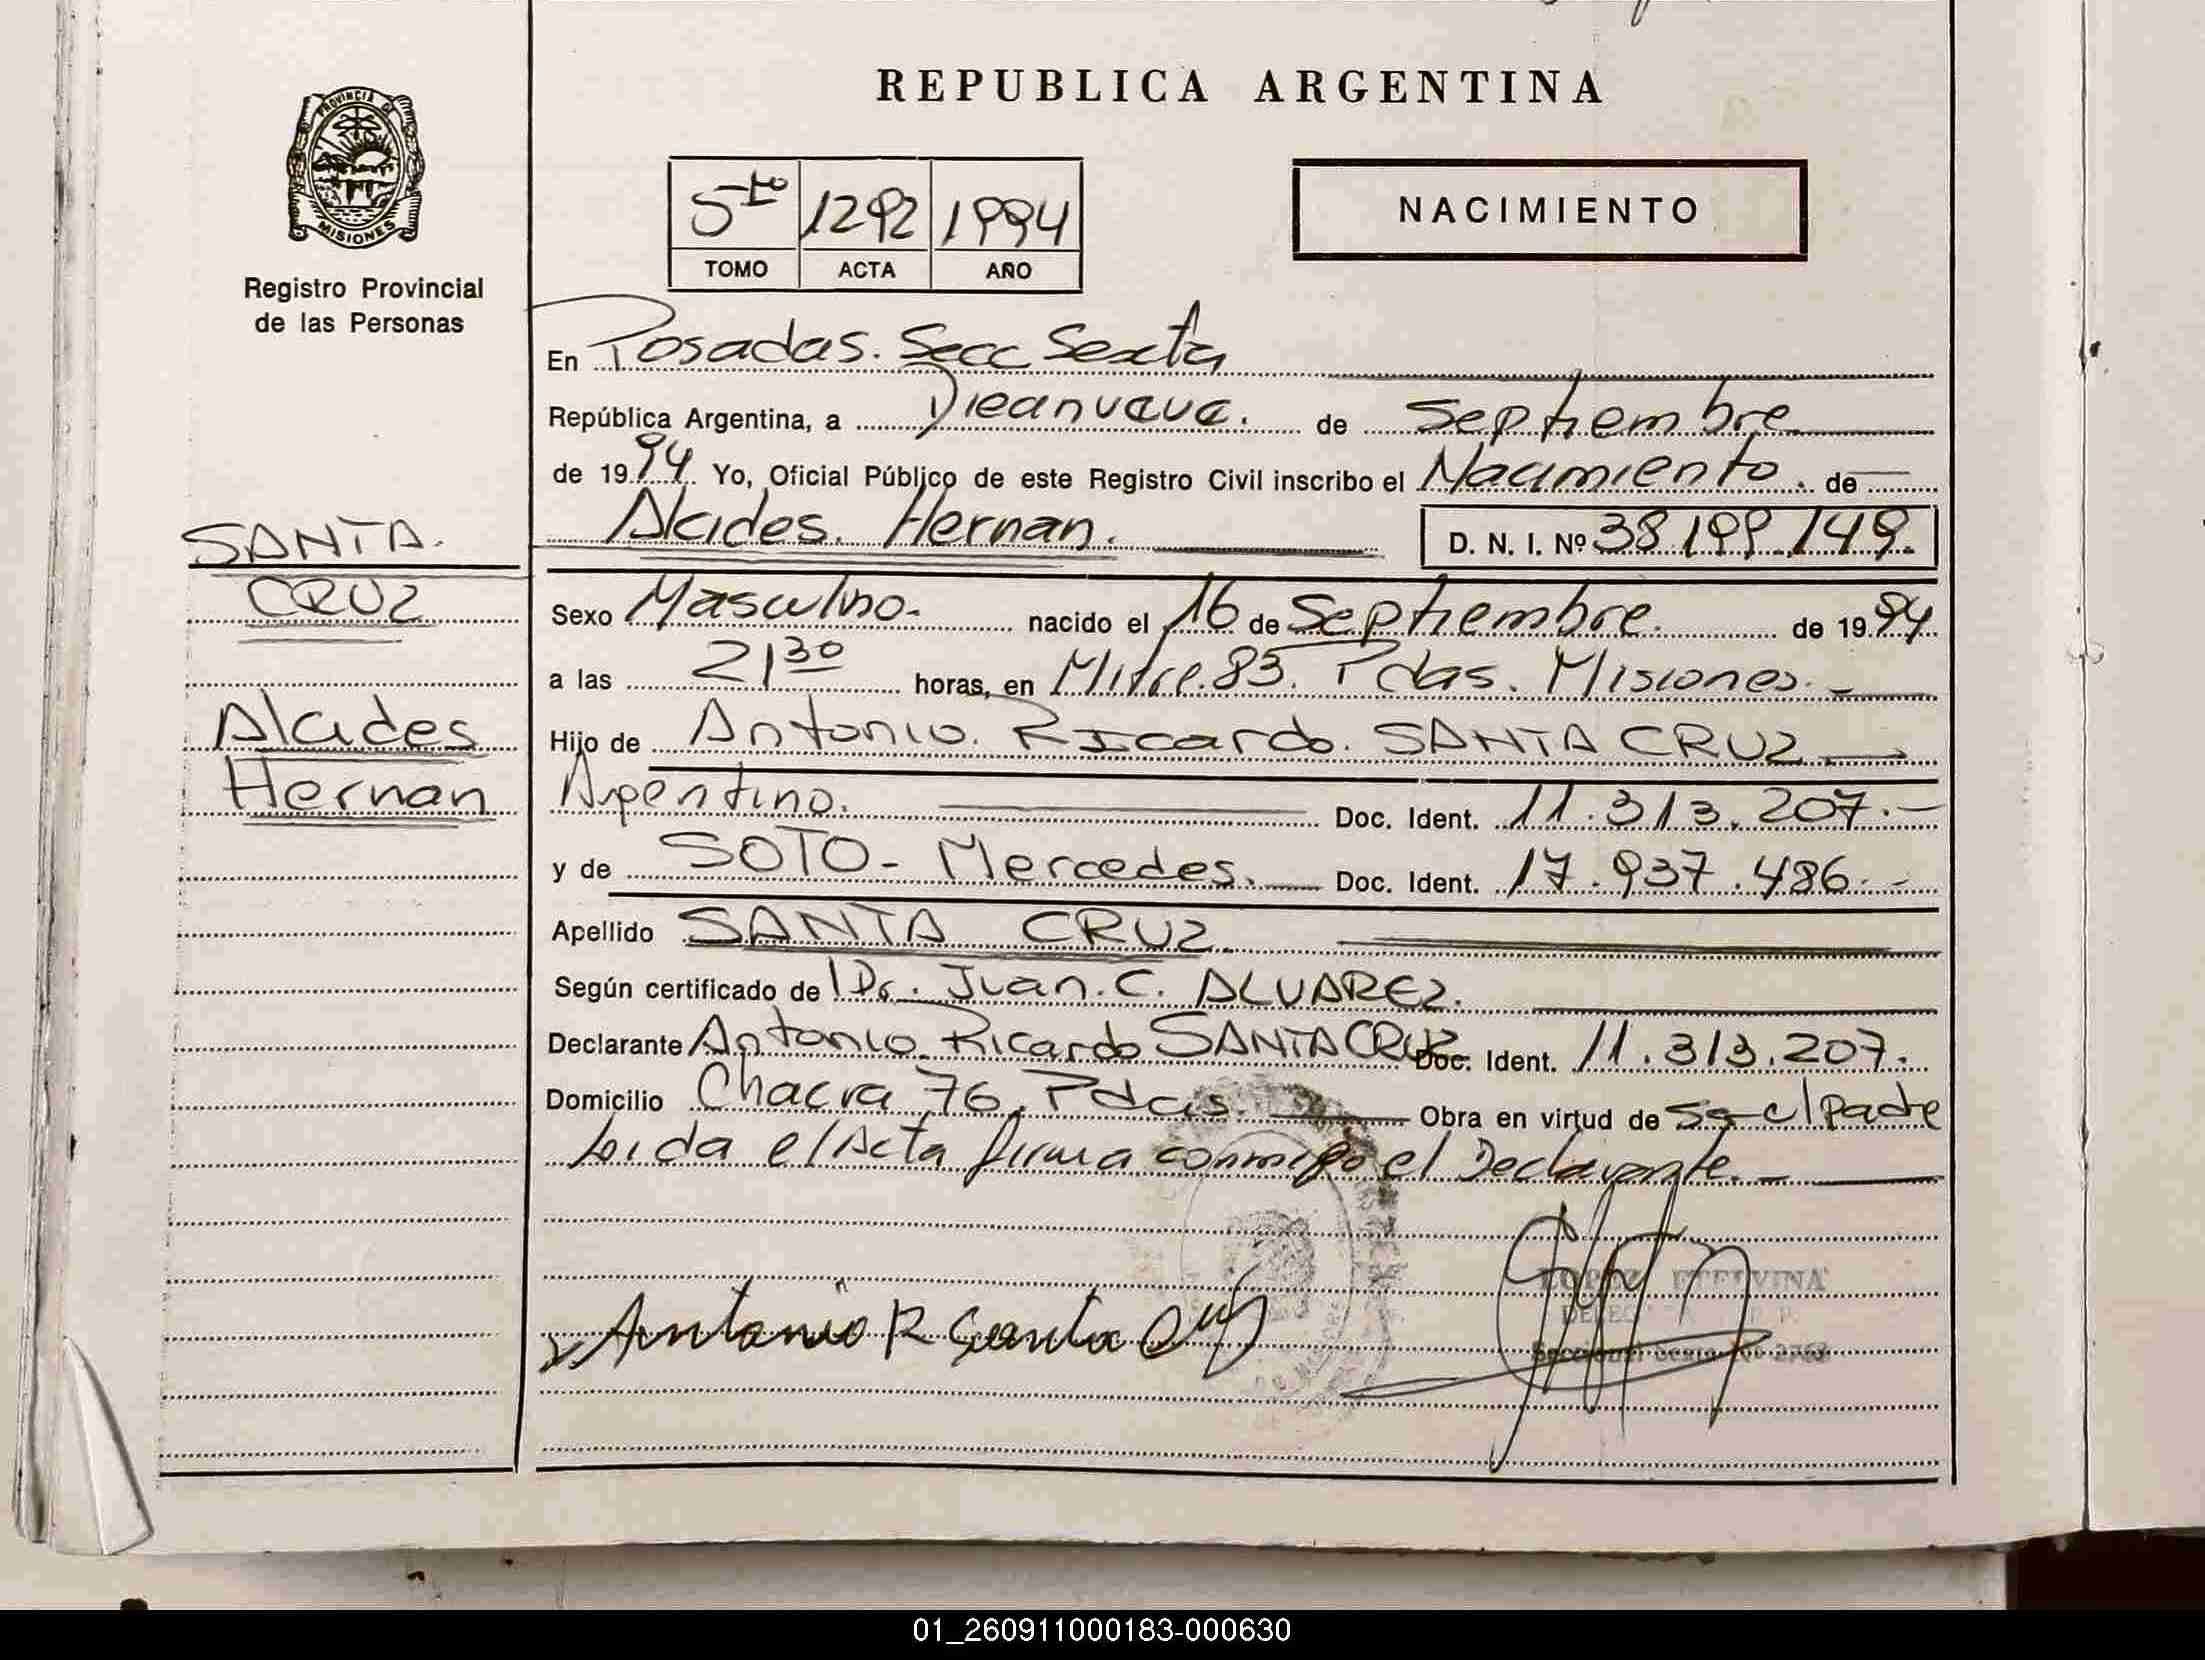 REPUBLICA ARGENTINA
PROVINCIA DE
MISIONES
Registro Provincial
de las Personas
5to 1292 1994
TOMO ACTA AÑO
NACIMIENTO
En Posadas. Secc Sexta
República Argentina, a Diecinueve. de Septiembre
de 1994 Yo, Oficial Público de este Registro Civil inscribo el Nacimiento. de
Alcides. Hernan. D. N. I. Nº 38.199.149.
SANTA.
CRUZ
Alcides
Hernan
Sexo Masculino. nacido el 16 de Septiembre. de 1994
a las 21 30 horas, en Mitre.83. Pdas. Misiones.
Hijo de Antonio. Ricardo. SANTA CRUZ
Argentino. Doc. Ident. 11.313.207.-
y de SOTO- Mercedes. Doc. Ident. 17.937.486.-
Apellido SANTA CRUZ
Según certificado de Dr. Juan. C. ALVAREZ.
Declarante Antonio. Ricardo SANTA CRUZ Doc. Ident. 11.313.207.
Domicilio Chacra 76. Pdas. Obra en virtud de ser el padre
Leida el Acta firma conmigo el Declarante.-
Antonio R Santa Cruz
LOPEZ ETELVINA
01_260911000183-000630